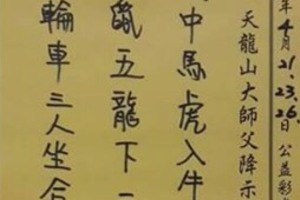 年4月21.23.26.日公益彩
天龍山大師父降示
中馬虎入牛
鼠五龍下一
輪車三人坐合